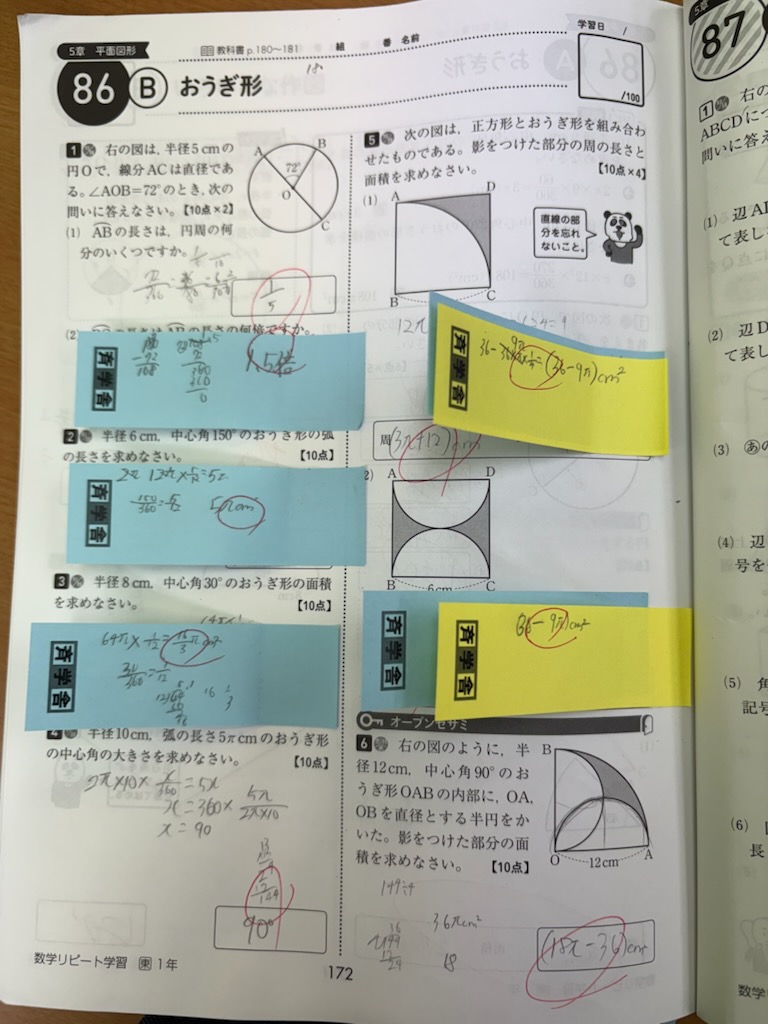 5章 平面図形
教科書p.180〜181 組 番 名前
学習日 /
86 B おうぎ形
18
/100
1 右の図は,半径5cmの
円Oで,線分ACは直径であ
る。∠AOB=72°のとき,次の
問いに答えなさい。【10点×2】
A B 72° O C
(1) ABの長さは,円周の何
分のいくつですか。
1/5
(2)
の長さは の長さの何倍ですか。
斉学舎
1.5倍
2 半径6cm,中心角150°のおうぎ形の弧
の長さを求めなさい。 【10点】
斉学舎
150/360=5/12 5πcm
3 半径8cm,中心角30°のおうぎ形の面積
を求めなさい。 【10点】
斉学舎
64π×1/12=16/3πcm²
30/360=1/12
4 半径10cm,弧の長さ5πcmのおうぎ形
の中心角の大きさを求めなさい。 【10点】
2π×10×x/360=5π
x=360×5π/2π×10
x=90
90°
5 次の図は,正方形とおうぎ形を組み合わ
せたものである。影をつけた部分の周の長さと
面積を求めなさい。 【10点×4】
(1) A D B C
直線の部
分を忘れ
ないこと。
12π
斉学舎
(36-9π)cm²
周 (3π+12)cm
2) A D B C 6cm
斉学舎
斉学舎
(36-9π)cm²
オープンセサミ
6 右の図のように,半
径12cm,中心角90°のお
うぎ形OABの内部に,OA,
OBを直径とする半円をか
いた。影をつけた部分の面
積を求めなさい。 【10点】
B O 12cm A
36πcm²
18
(18π-36)cm²
数学リピート学習 東 1年
172
5章
87
1 右の
ABCDにつ
問いに答え
(1) 辺AD
て表し
(2) 辺D
て表し
(3) あの
(4) 辺
号を
(5) 角
記号
(6)
長
数学